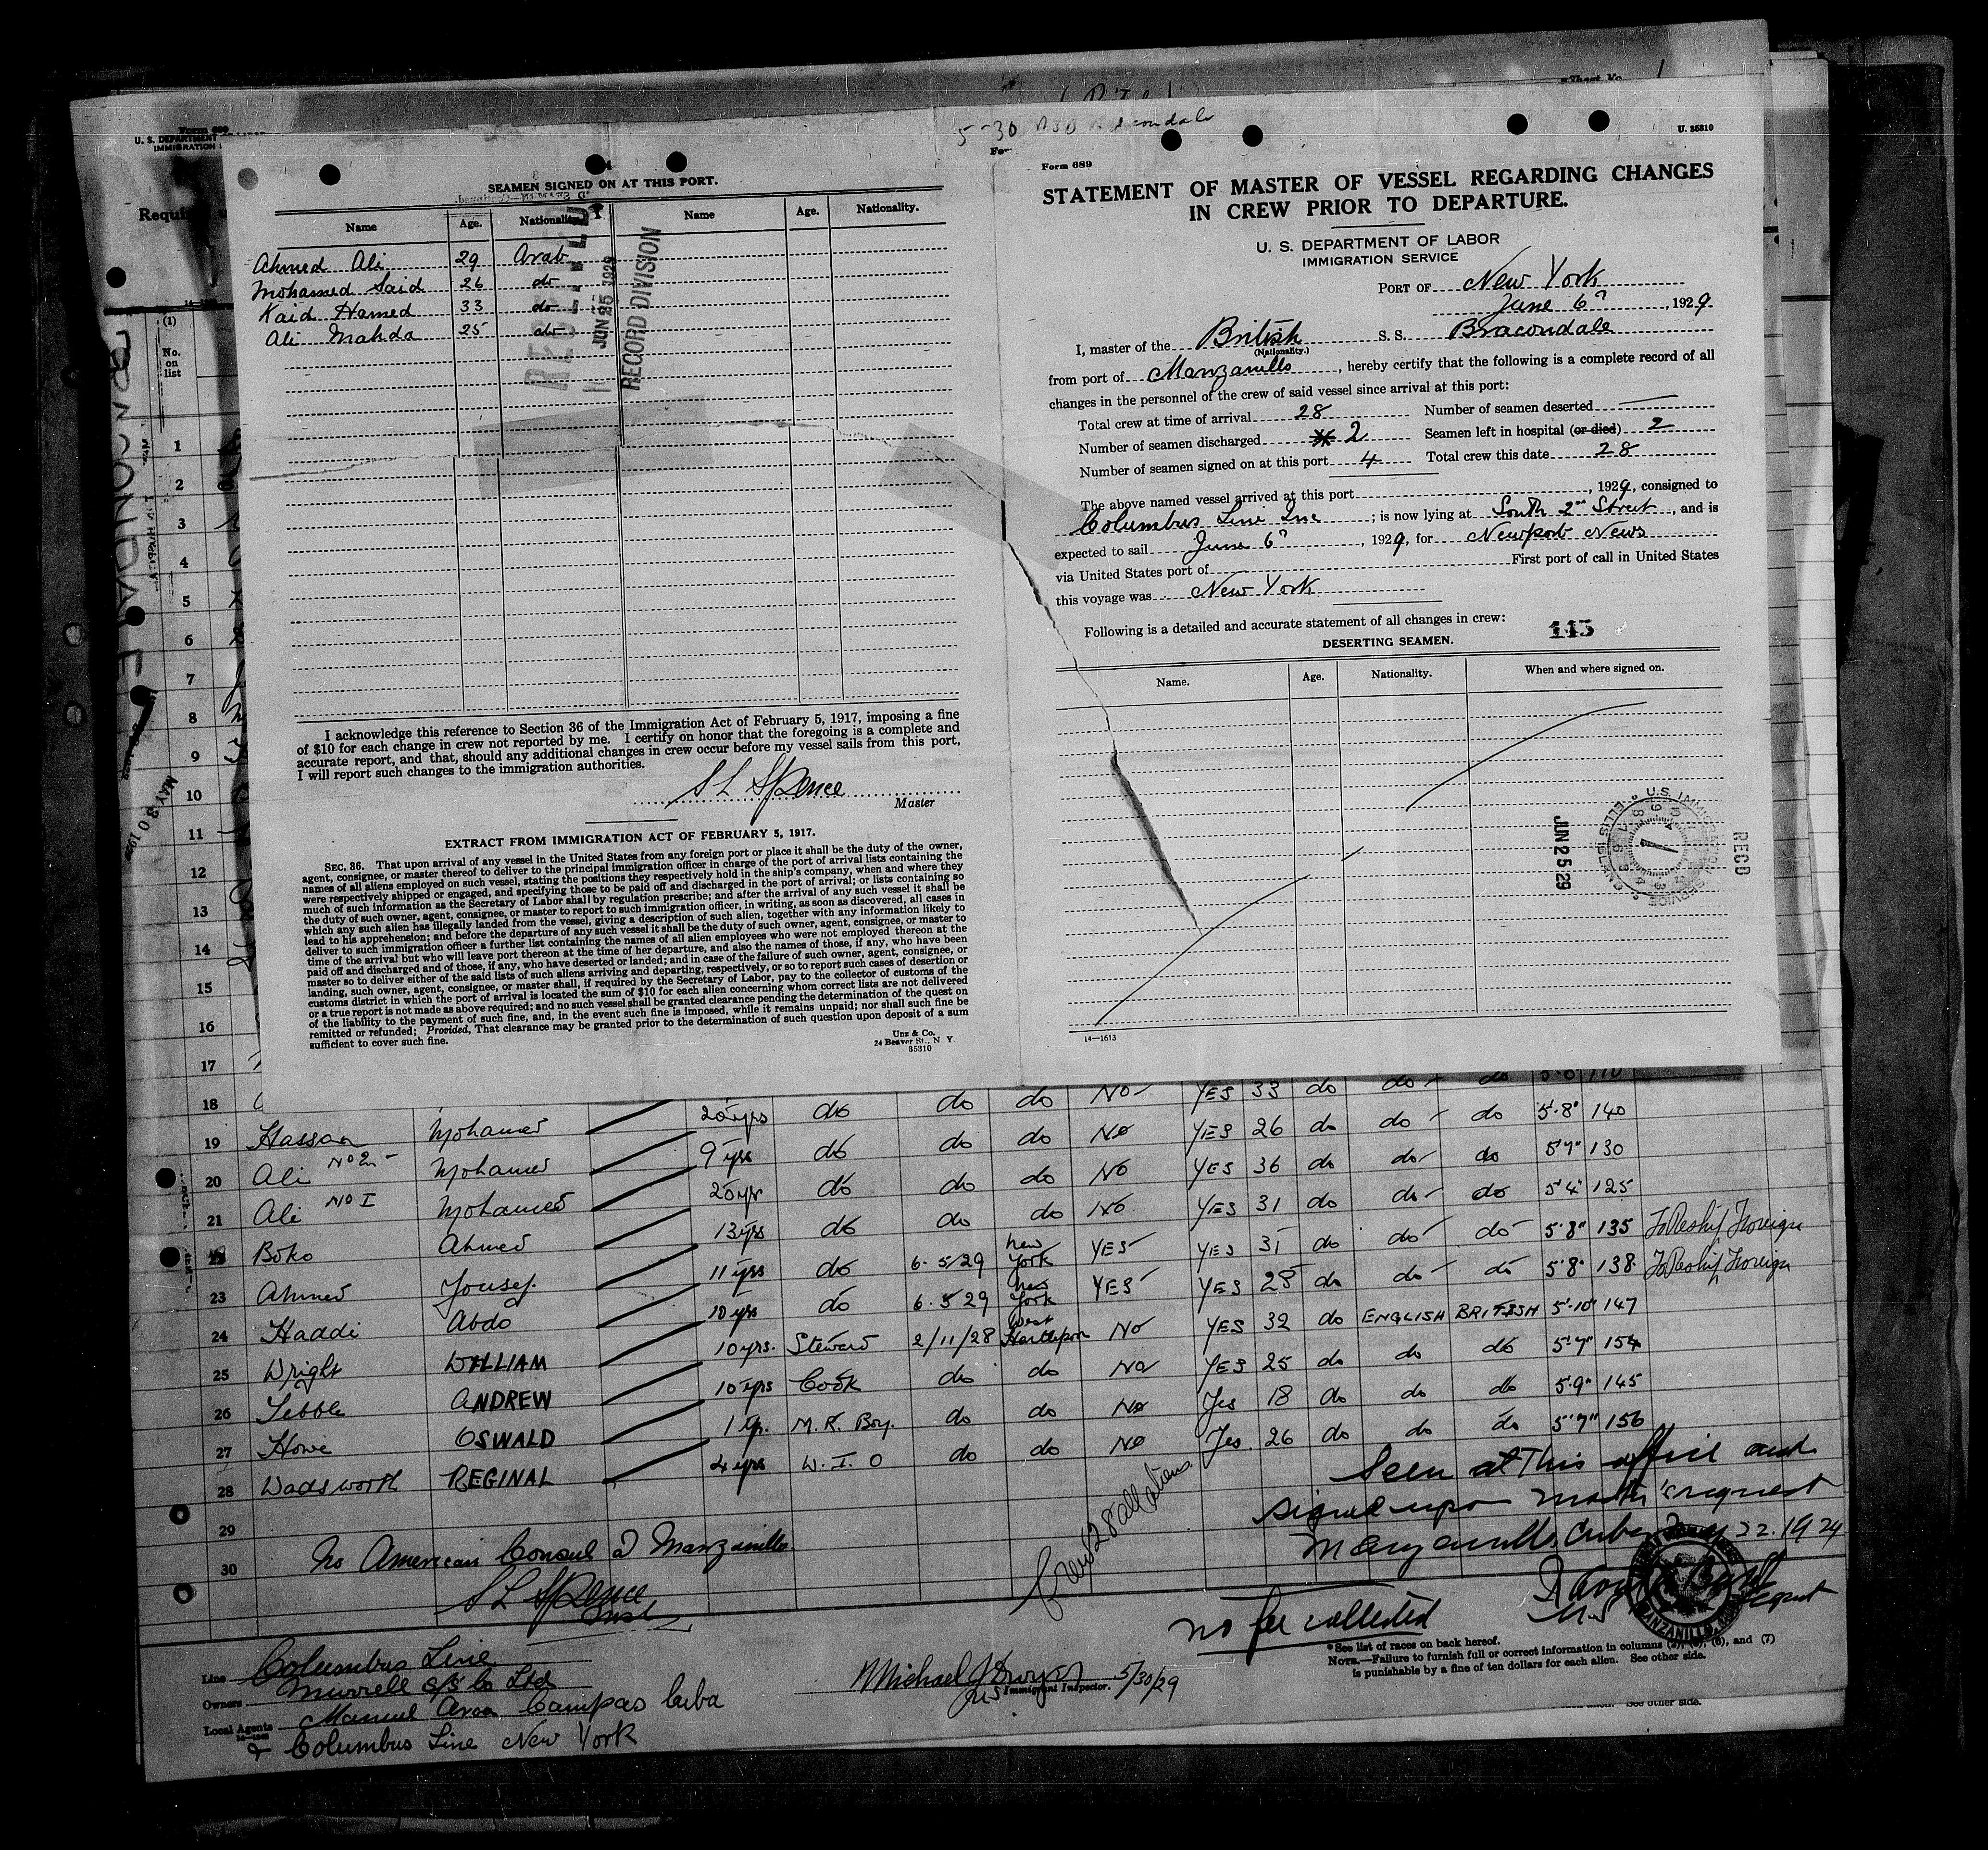 Form 689
U. S. DEPARTMENT
IMMIGRATION
5-30
SEAMEN SIGNED ON AT THIS PORT.
Name Age. Nationality. Name Age. Nationality.
Ahmed Ali 29 Arab
Mohamed Said 26 do
Kaid Hamed 33 do
Ali Mahda 25 do
RECEIVED
JUN 25 1929
RECORD DIVISION
I acknowledge this reference to Section 36 of the Immigration Act of February 5, 1917, imposing a fine
of $10 for each change in crew not reported by me. I certify on honor that the foregoing is a complete and
accurate report, and that, should any additional changes in crew occur before my vessel sails from this port,
I will report such changes to the immigration authorities.
S L Spence
Master
EXTRACT FROM IMMIGRATION ACT OF FEBRUARY 5, 1917.
SEC. 36. That upon arrival of any vessel in the United States from any foreign port or place it shall be the duty of the owner,
agent, consignee, or master thereof to deliver to the principal immigration officer in charge of the port of arrival lists containing the
names of all aliens employed on such vessel, stating the positions they respectively hold in the ship's company, when and where they
were respectively shipped or engaged, and specifying those to be paid off and discharged in the port of arrival; or lists containing so
much of such information as the Secretary of Labor shall by regulation prescribe; and after the arrival of any such vessel it shall be
the duty of such owner, agent, consignee, or master to report to such immigration officer, in writing, as soon as discovered, all cases in
which any such alien has illegally landed from the vessel, giving a description of such alien, together with any information likely to
lead to his apprehension; and before the departure of any such vessel it shall be the duty of such owner, agent, consignee, or master to
deliver to such immigration officer a further list containing the names of all alien employees who were not employed thereon at the
time of the arrival but who will leave port thereon at the time of her departure, and also the names of those, if any, who have been
paid off and discharged and of those, if any, who have deserted or landed; and in case of the failure of such owner, agent, consignee, or
master so to deliver either of the said lists of such aliens arriving and departing, respectively, or so to report such cases of desertion or
landing, such owner, agent, consignee, or master shall, if required by the Secretary of Labor, pay to the collector of customs of the
customs district in which the port of arrival is located the sum of $10 for each alien concerning whom correct lists are not delivered
or a true report is not made as above required; and no such vessel shall be granted clearance pending the determination of the quest on
of the liability to the payment of such fine, and, in the event such fine is imposed, while it remains unpaid; nor shall such fine be
remitted or refunded; Provided, That clearance may be granted prior to the determination of such question upon deposit of a sum
sufficient to cover such fine.
Unz & Co.
24 Beaver St., N Y
35310
U. 35310
Form 689
STATEMENT OF MASTER OF VESSEL REGARDING CHANGES
IN CREW PRIOR TO DEPARTURE.
U. S. DEPARTMENT OF LABOR
IMMIGRATION SERVICE
PORT OF New York
June 6th, 1929.
I, master of the British S. S. Bracondale
(Nationality.)
from port of Manzanillo, hereby certify that the following is a complete record of all
changes in the personnel of the crew of said vessel since arrival at this port:
Total crew at time of arrival 28 Number of seamen deserted
Number of seamen discharged 2 Seamen left in hospital (or died) 2
Number of seamen signed on at this port 4 Total crew this date 28
The above named vessel arrived at this port , 1929, consigned to
Columbus Line Inc ; is now lying at South 2nd Street, and is
expected to sail June 6th, 1929, for Newport News
via United States port of First port of call in United States
this voyage was New York
Following is a detailed and accurate statement of all changes in crew: 143
DESERTING SEAMEN.
Name. Age. Nationality. When and where signed on.
U.S. IMMIGRATION SERVICE ELLIS
JUN 25 29
REC'D
14—1613
(1)
No.
on
list
BRACONDALE
MAY 30 1929
1
2
3
4
5
6
7
8
9
10
11
12
13
14
15
16
17
18 20 yrs do do do No YES 33 do do do 5·8 110
19 Hassan Mohamed 9 yrs do do do No YES 26 do do do 5·8" 140
20 Ali No 2 Mohamed 20 yr do do do No YES 36 do do do 5'7" 130
21 Ali No I Mohamed 13 yrs do do do No YES 31 do do do 5'4" 125
Boko Ahmed 11 yrs do 6.5/29 New York YES YES 31 do do do 5'8" 135 To Reship Foreign
23 Ahmed Yousef 10 yrs do 6.5 29 New York YES YES 28 do do do 5'8" 138 To Reship Foreign
24 Haddi Abdo
25 Wright WILLIAM 10 yrs. Steward 2/11/28 West Hartlepool No YES 32 do ENGLISH BRITISH 5'-10" 147
26 Tebble ANDREW 10 yrs Cook do do No YES 25 do do do 5'7" 154
27 Howe OSWALD 1 yr. M.R. Boy. do do No Yes 18 do do do 5'9" 145
28 Wadsworth REGINAL 4 yrs W. T. O do do No Yes 26 do do do 5'7" 156
29
30
No American Consul at Manzanillo
S L Spence
Crew 28 all aliens
Seen at this office and
signed upon master's request
Manzanillo, Cuba May 22. 1929
no fee collected
MANZANILLO,
Line Columbus Line
Owners Murrell S/S Co Ltd
Local Agents Manuel Arca Campos Cuba
& Columbus Line New York
Michael J Dwyer 5/30/29
Immigrant Inspector.
*See list of races on back hereof.
NOTE.—Failure to furnish full or correct information in columns (6), and (7)
is punishable by a fine of ten dollars for each alien. See other side.
See other side.